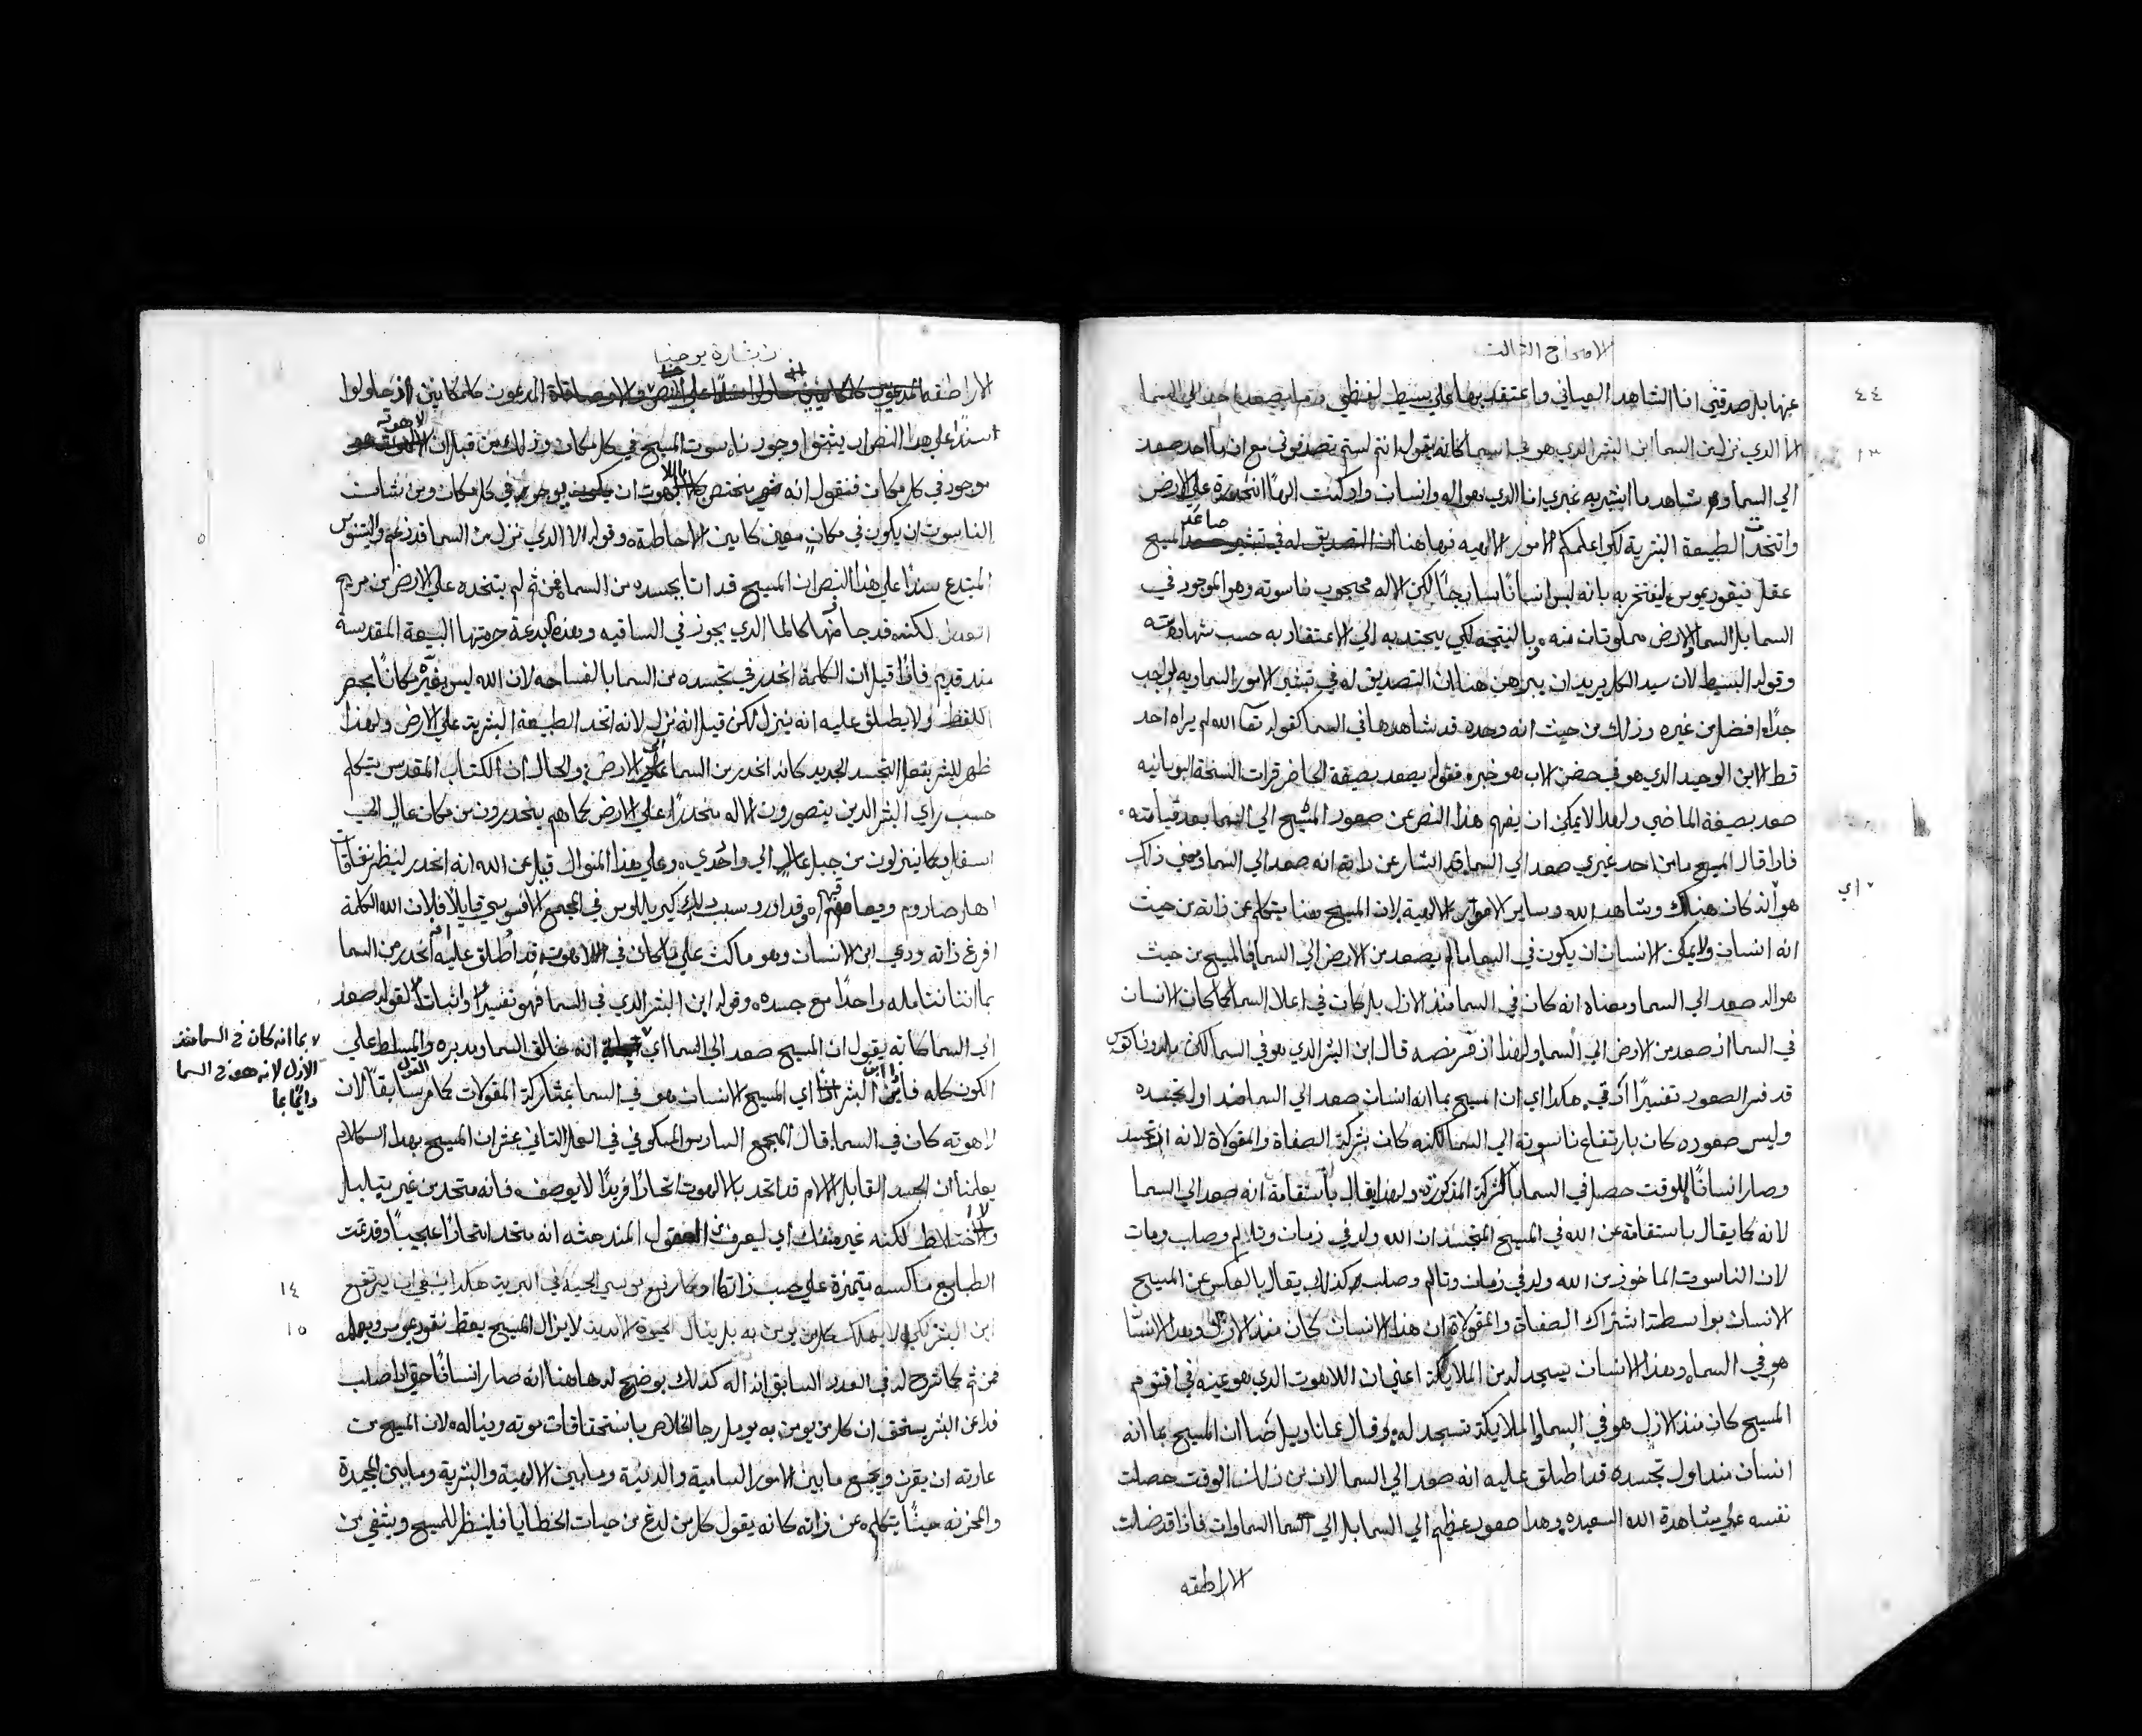 الاصحاح الثالث
٤٤
عنها بل صدقني انا الشاهد العياني واعتقد بها علي بسيط لفظي وما يصعد احد الي السما
١٣
الا الذي نزل من السما ابن البشر الذي هو في السما كانه يقول انتم لستم تصدقوني مع ان ما احد صعد
الي السما وشاهد ما ابشر به غيري انا الذي هو اله وانسان واذ كنت الهًا انحدرت علي الارض
واتخذت الطبيعة البشرية لكي اعلمكم الامور الالهيه فهاهنا المسيح
عقل نيقوديموس ليفتخر به بانه ليس انسانًا سادجًا لكن الاله محجوب بناسوته وهو الموجود في
السما بل السما والارض مملوتان منه وبالنتيجه لكي يجتذبه الي الاعتقاد به حسب شهادته
وقوله البسيط لان سيد الكل يريد ان يبرهن هنا ان التصديق له في تبشير الامور السماويه لواجب
جدًا افضل من غيره وذلك من حيث انه وحده قد شاهدها في السما كقوله تعا الله لم يراه احد
قط الابن الوحيد الذي هو في حضن الاب هو خبر فقوله يصعد بصيغة الحاضر قرات النسخة اليونانيه
صعد بصيغة الماضي ولهذا لا يمكن ان يفهم هذا النص عن صعود المسيح الي السما بعد قيامته
فاذا قال المسيح ما من احد غيري صعد الي السما قد اشار عن ذاته انه صعد الي السما ومعني ذلك
هو انه كان هناك وشاهد الله وساير الامور الالهية لان المسيح هنا يتكلم عن ذاته من حيث
انه انسان ولا يمكن الانسان ان يكون في السما ما لم يصعد من الارض الي السما فالمسيح من حيث
هو اله صعد الي السما ومعناه انه كان في السما منذ الازل بل كان في اعلا السما كما كان الانسان
في السما اذ صعد من الارض الي السما ولهذا اذ فسر نصه قال ابن البشر الذي هو في السما لكن ملدوناتوس
قد فسر الصعود تفسيرًا ادق هكذا اي ان المسيح بما انه انسان صعد الي السما منذ اول تجسده
وليس صعوده كان بارتفاع ناسوته الي السما لكنه كان بشركة الصفاة والمقولاة لانه اذ تجسد
وصار انسانًا للوقت حصل في السما بالشركة المذكوره ولهذا يقال باستقامة انه صعد الي السما
لانه كما يقال باستقامة عن الله في المسيح المتجسد ان الله ولد في زمان وتالم وصلب ومات
لان الناسوت الماخوذ من الله ولد في زمان وتالم وصلب كذلك يقال بالعكس عن المسيح
الانسان بواسطة اشتراك الصفاة والمقولاة ان هذا الانسان كان منذ الازل وهذا الانسان
هو في السما وهذا الانسان يسجد له من الملايكة اعني ان اللاهوت الذي هو عينه في اقنوم
المسيح كان منذ الازل هو في السما والملايكة تسجد له وقال عماناويل صا ان المسيح بما انه
انسان منذ اول تجسده قد اطلق عليه انه صعد الي السما لان من ذلك الوقت حصلت
نفسه علي مشاهدة الله السعيده وهذا صعود عظيم الي السما بل الي سما السماوات فاذا قد ضلت
الاراطقه
بشارة يوحنا
الاراطقه المدعوون كلمكانيين اذ حاولوا
اسندًا علي هذا النص ان يثبتوا وجود ناسوت المسيح في كل مكان وذلك من قبل ان لاهوته
موجود في كل مكان فنقول انه يختص باللاهوت ان يوجد في كل مكان ومن شان
الناسوت ان يكون في مكان معين كاين الاحاطة وقوله الا الذي نزل من السما قد زعم والينتنوس
المبتدع سندًا علي هذا النص ان المسيح قد اتا بجسده من السما فمن ثم لم يتخذه علي الارض من مريم
البتول لكنه قد جا منها كالما الذي يجوز في الساقيه وهذه البدعة حرمتها البيعة المقدسة
منذ قديم فاذا قيل ان الكلمة انحدر في تجسده من السما بالفساحه لان الله ليس يغير مكانًا بحصر
اللفظ ولا يطلق عليه انه ينزل لكن قيل انه نزل لانه اتخد الطبيعة البشرية علي الارض ولهذا
ظهر للبشر بفعل التجسد الجديد كانه انحدر من السما الي الارض والحال ان الكتاب المقدس يتكلم
حسب راي البشر الذين يتصورون الاله منحدرًا علي الارض كما هم ينحدرون من مكان عالٍ الي
اسفل وكما ينزلون من جبل عالٍ الي وادي وعلي هذا المنوال قيل عن الله انه انحدر لينظر نفاقات
اهل صادوم وقد اورد سبب ذلك كيرللوس في المجمع الافسوسي قايلًا فلان الله الكلمة
افرغ ذاته ودعي ابن الانسان وهو ماكث علي ما كان في اللاهوت قد اطلق عليه انه انحدر من السما
بما اننا نتامله واحدًا مع جسده وقوله ابن البشر الذي في السما فهو تفسيرًا واثباتًا لقوله صعد
الي السما كانه يقول ان المسيح صعد الي السما اي انه خالق السما ومدبره والمسلط علي
لا بما انه كان في السما منذ
الازل لانه هو في السما
دايمًا بما
الكون كله فابن البشر اي المسيح الانسان هو في السما بمشاركة المقولات كما مر القول سابقًا لان
لاهوته كان في السما قال المجمع السادس المسكوني في العمل الثاني عشر ان المسيح بهذا الكلام
يعلمنا ان الجسد القابل الالام قد اتحد بالاهوت اتحادًا فريدًا لا يوصف فانه متحد من غير تبلبل
ولا اختلاط لكنه غير منفك اي ليعرف من العقول المندهشه انه متحد اتحادًا عجيبًا وقد تمت
١٤
الطبايع ماكسه متميزة علي حسب ذاتها وكما رفع موسي الحية في البرية هكذا ينبغي ان يرتفع
١٥
ابن البشر لكي لا يهلك كل من يومن به بل ينال الحيوة الابدية لا يزال المسيح يعظ نيقوديموس ويعلمه
فمن ثم كما شرح له في العدد السابق انه اله كذلك يوضح له هاهنا انه صار انسانًا حتي اذا صلب
فداءً عن البشر يستحق ان كل من يومن به يومل رجا الخلاص باستحقاقات موته ويناله لان المسيح من
عادته ان يقرن ويجمع ما بين الامور السامية والدنيئة وما بين الالهية والبشرية وما بين المجيدة
والمحزنه حيثما يتكلم عن ذاته كانه يقول كل من لدغ من حيات الخطايا فلينظر للمسيح ويشفي من